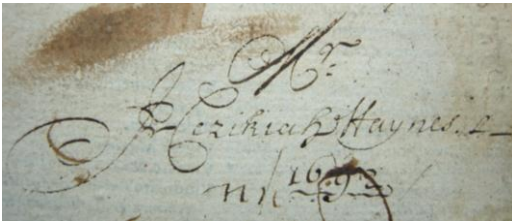 Mr.
Hezikiah Haynes
1693